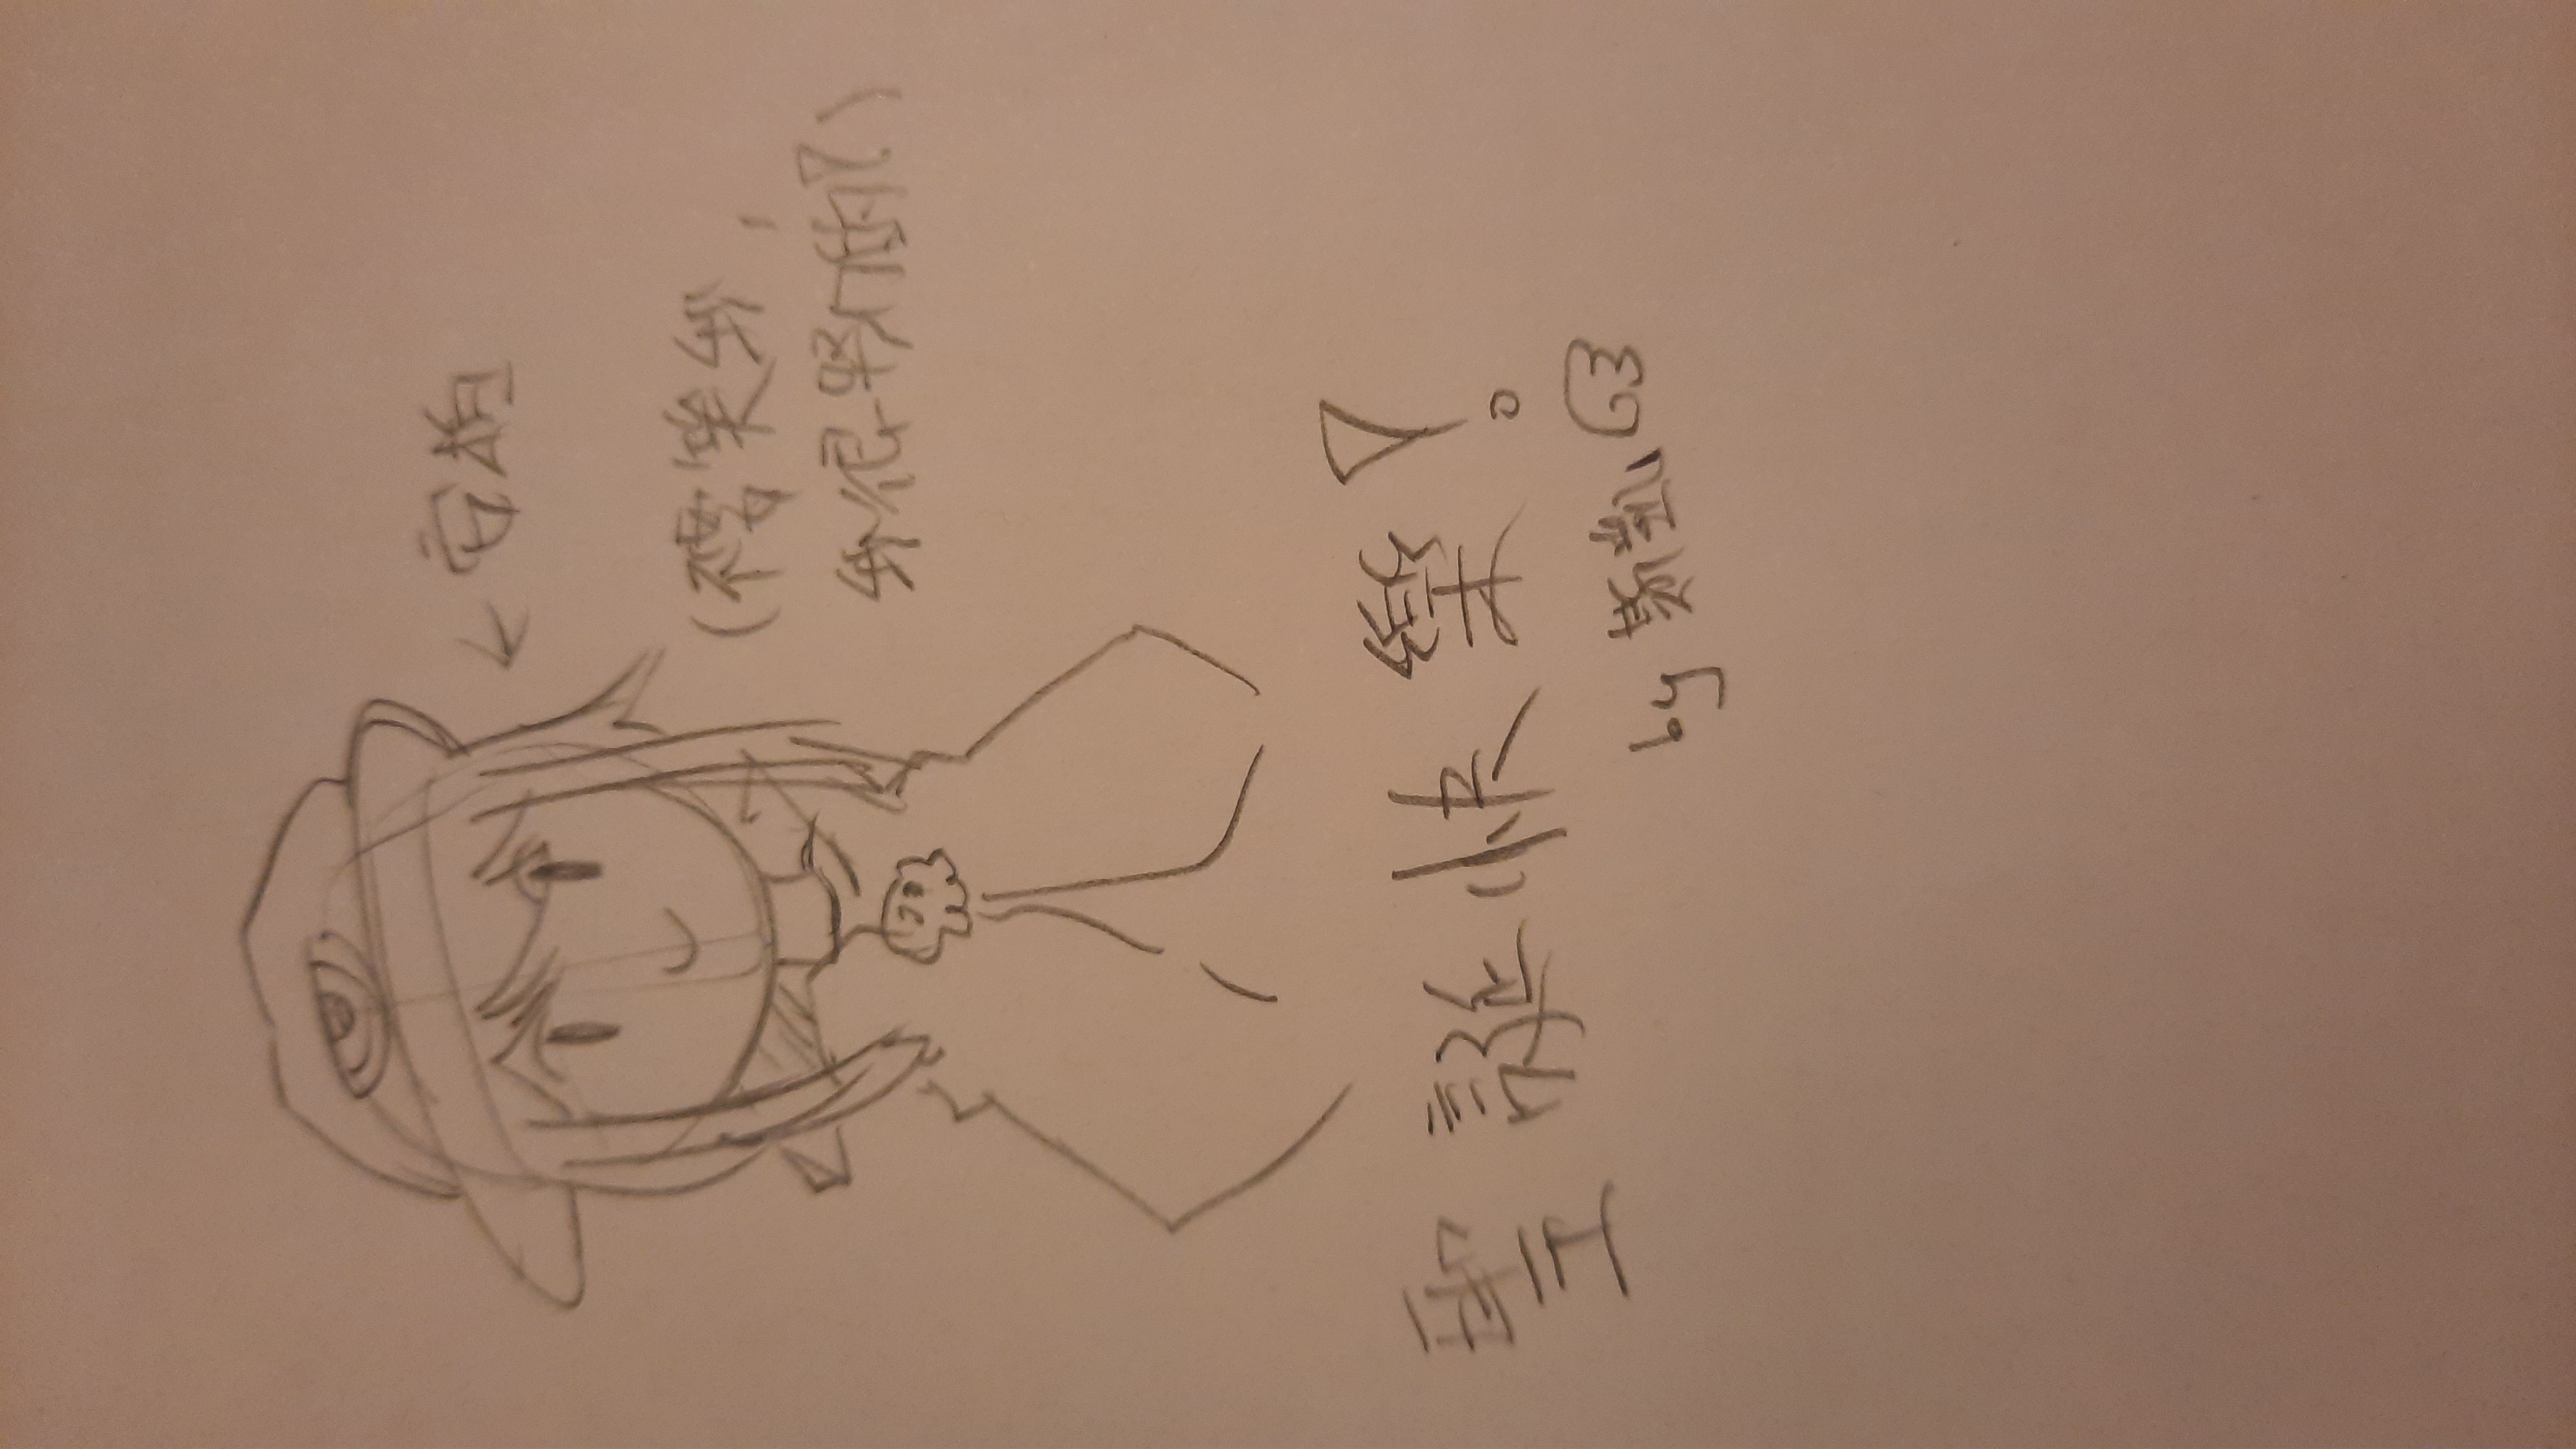 ←安柏
(不要笑我，
我很努力的！)
聖誕快樂！
by 斯凱